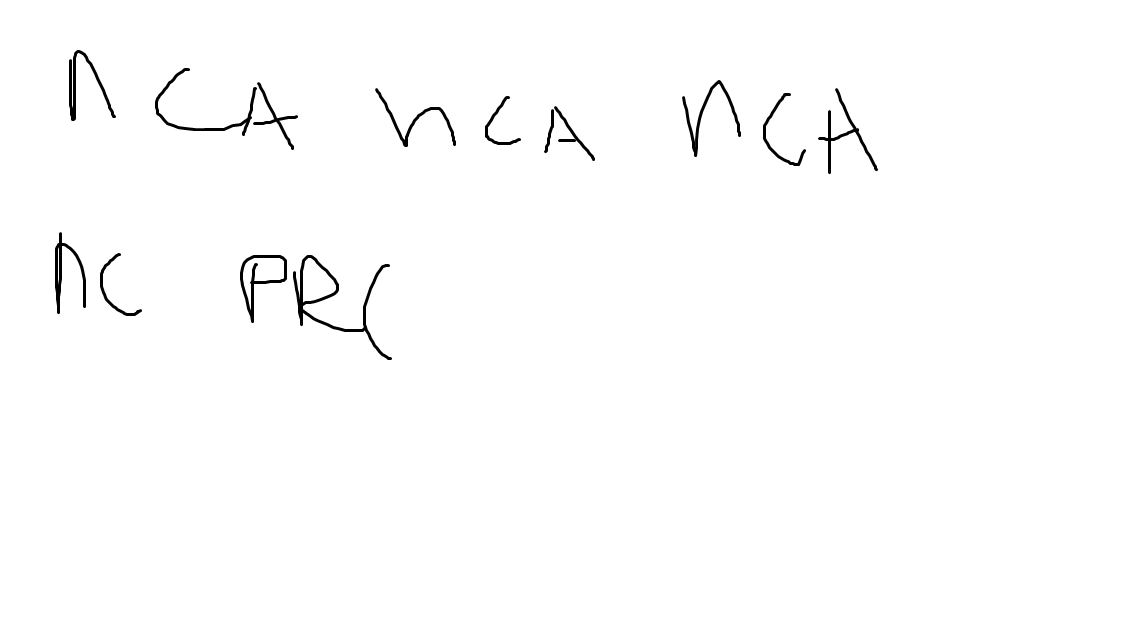 nCA nCA nCA
nC PRC